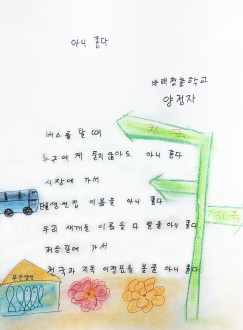 아니 좋다
바래청춘학교
양정자
천국
버스를 탈 때
누구에게 묻지 않아도 아니 좋다
시장에 가서
단골생선집 이름을 아니 좋다
우리 새끼들 이름을 다 쓸줄 아니 좋다
저승길에 가서
천국과 지옥 이정표를 볼줄 아니 좋다